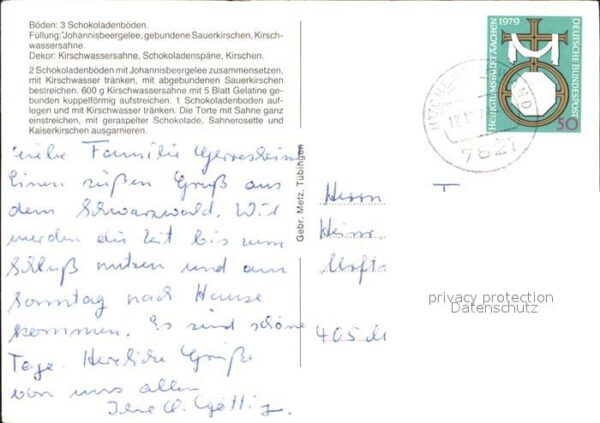 Böden: 3 Schokoladenböden.
Füllung: Johannisbeergelee, gebundene Sauerkirschen, Kirsch-
wassersahne.
Dekor: Kirschwassersahne, Schokoladenspäne, Kirschen.
2 Schokoladenböden mit Johannisbeergelee zusammensetzen,
mit Kirschwasser tränken, mit abgebundenen Sauerkirschen
bestreichen. 600 g Kirschwassersahne mit 5 Blatt Gelatine ge-
bunden kuppelförmig aufstreichen. 1 Schokoladenboden auf-
legen und mit Kirschwasser tränken. Die Torte mit Sahne ganz
einstreichen, mit geraspelter Schokolade, Sahnerosette und
Kaiserkirschen ausgarnieren.
Liebe Familie Gerresheim
Einen süßen Gruß aus
dem Schwarzwald. Wir
werden die Zeit bis zum
Schluß nutzen und am
Sonntag nach Hause
kommen. Es sind schöne
Tage. Herzliche Grüße
von uns allen
Gebr. Metz, Tübingen
1979
HEILIGTUMSFAHRT AACHEN
DEUTSCHE BUNDESPOST
50
7821
Herrn
Heinr
405
privacy protection
Datenschutz